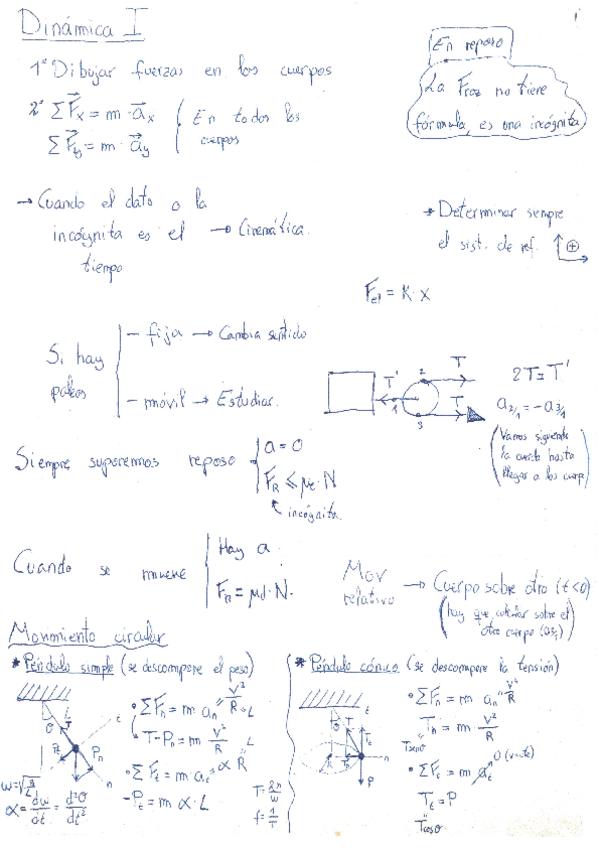 Dinámica I
1º Dibujar fuerzas en los cuerpos
2º ΣF⃗x = m · a⃗x
ΣF⃗y = m · a⃗y
En todos los
cuerpos
En reposo
La Froz no tiene
fórmula, es una incógnita
→ Cuando el dato o la
incógnita es el → Cinemática.
tiempo
* Determinar siempre
el sist. de ref.
Fel = K · x
Si hay
poleas
- fija → Cambia sentido
- móvil → Estudiar.
T'
1
2
3
T
T
2T = T'
a2/1 = -a3/1
(Vamos siguiendo
la cuerda hasta
llegar a los cuerpos)
Siempre suponemos reposo
a = 0
FR ≤ μe · N
incógnita.
Cuando se mueve
Hay a
FR = μd · N.
Mov
relativo → Cuerpo sobre otro (t<0)
(hay que calcular sobre el
otro cuerpo)
Movimiento circular
* Péndulo simple (se descompone el peso)
θ
T
t
Pt
Pn
n
• ΣFn = m · an = v²/R
T - Pn = m v²/R
L
• ΣFt = m · at = α R
- Pt = m α · L
α = dw/dt = d²θ/dt²
T = 2π/w
f = 1/T
* Péndulo cónico (se descompone la tensión)
t
θ
T
Tt
R
Tn
n
P
• ΣFn = m an = v²/R
Tn = m · v²/R
Tsenθ
• ΣFt = m · at 0
Tt = P
Tcosθ